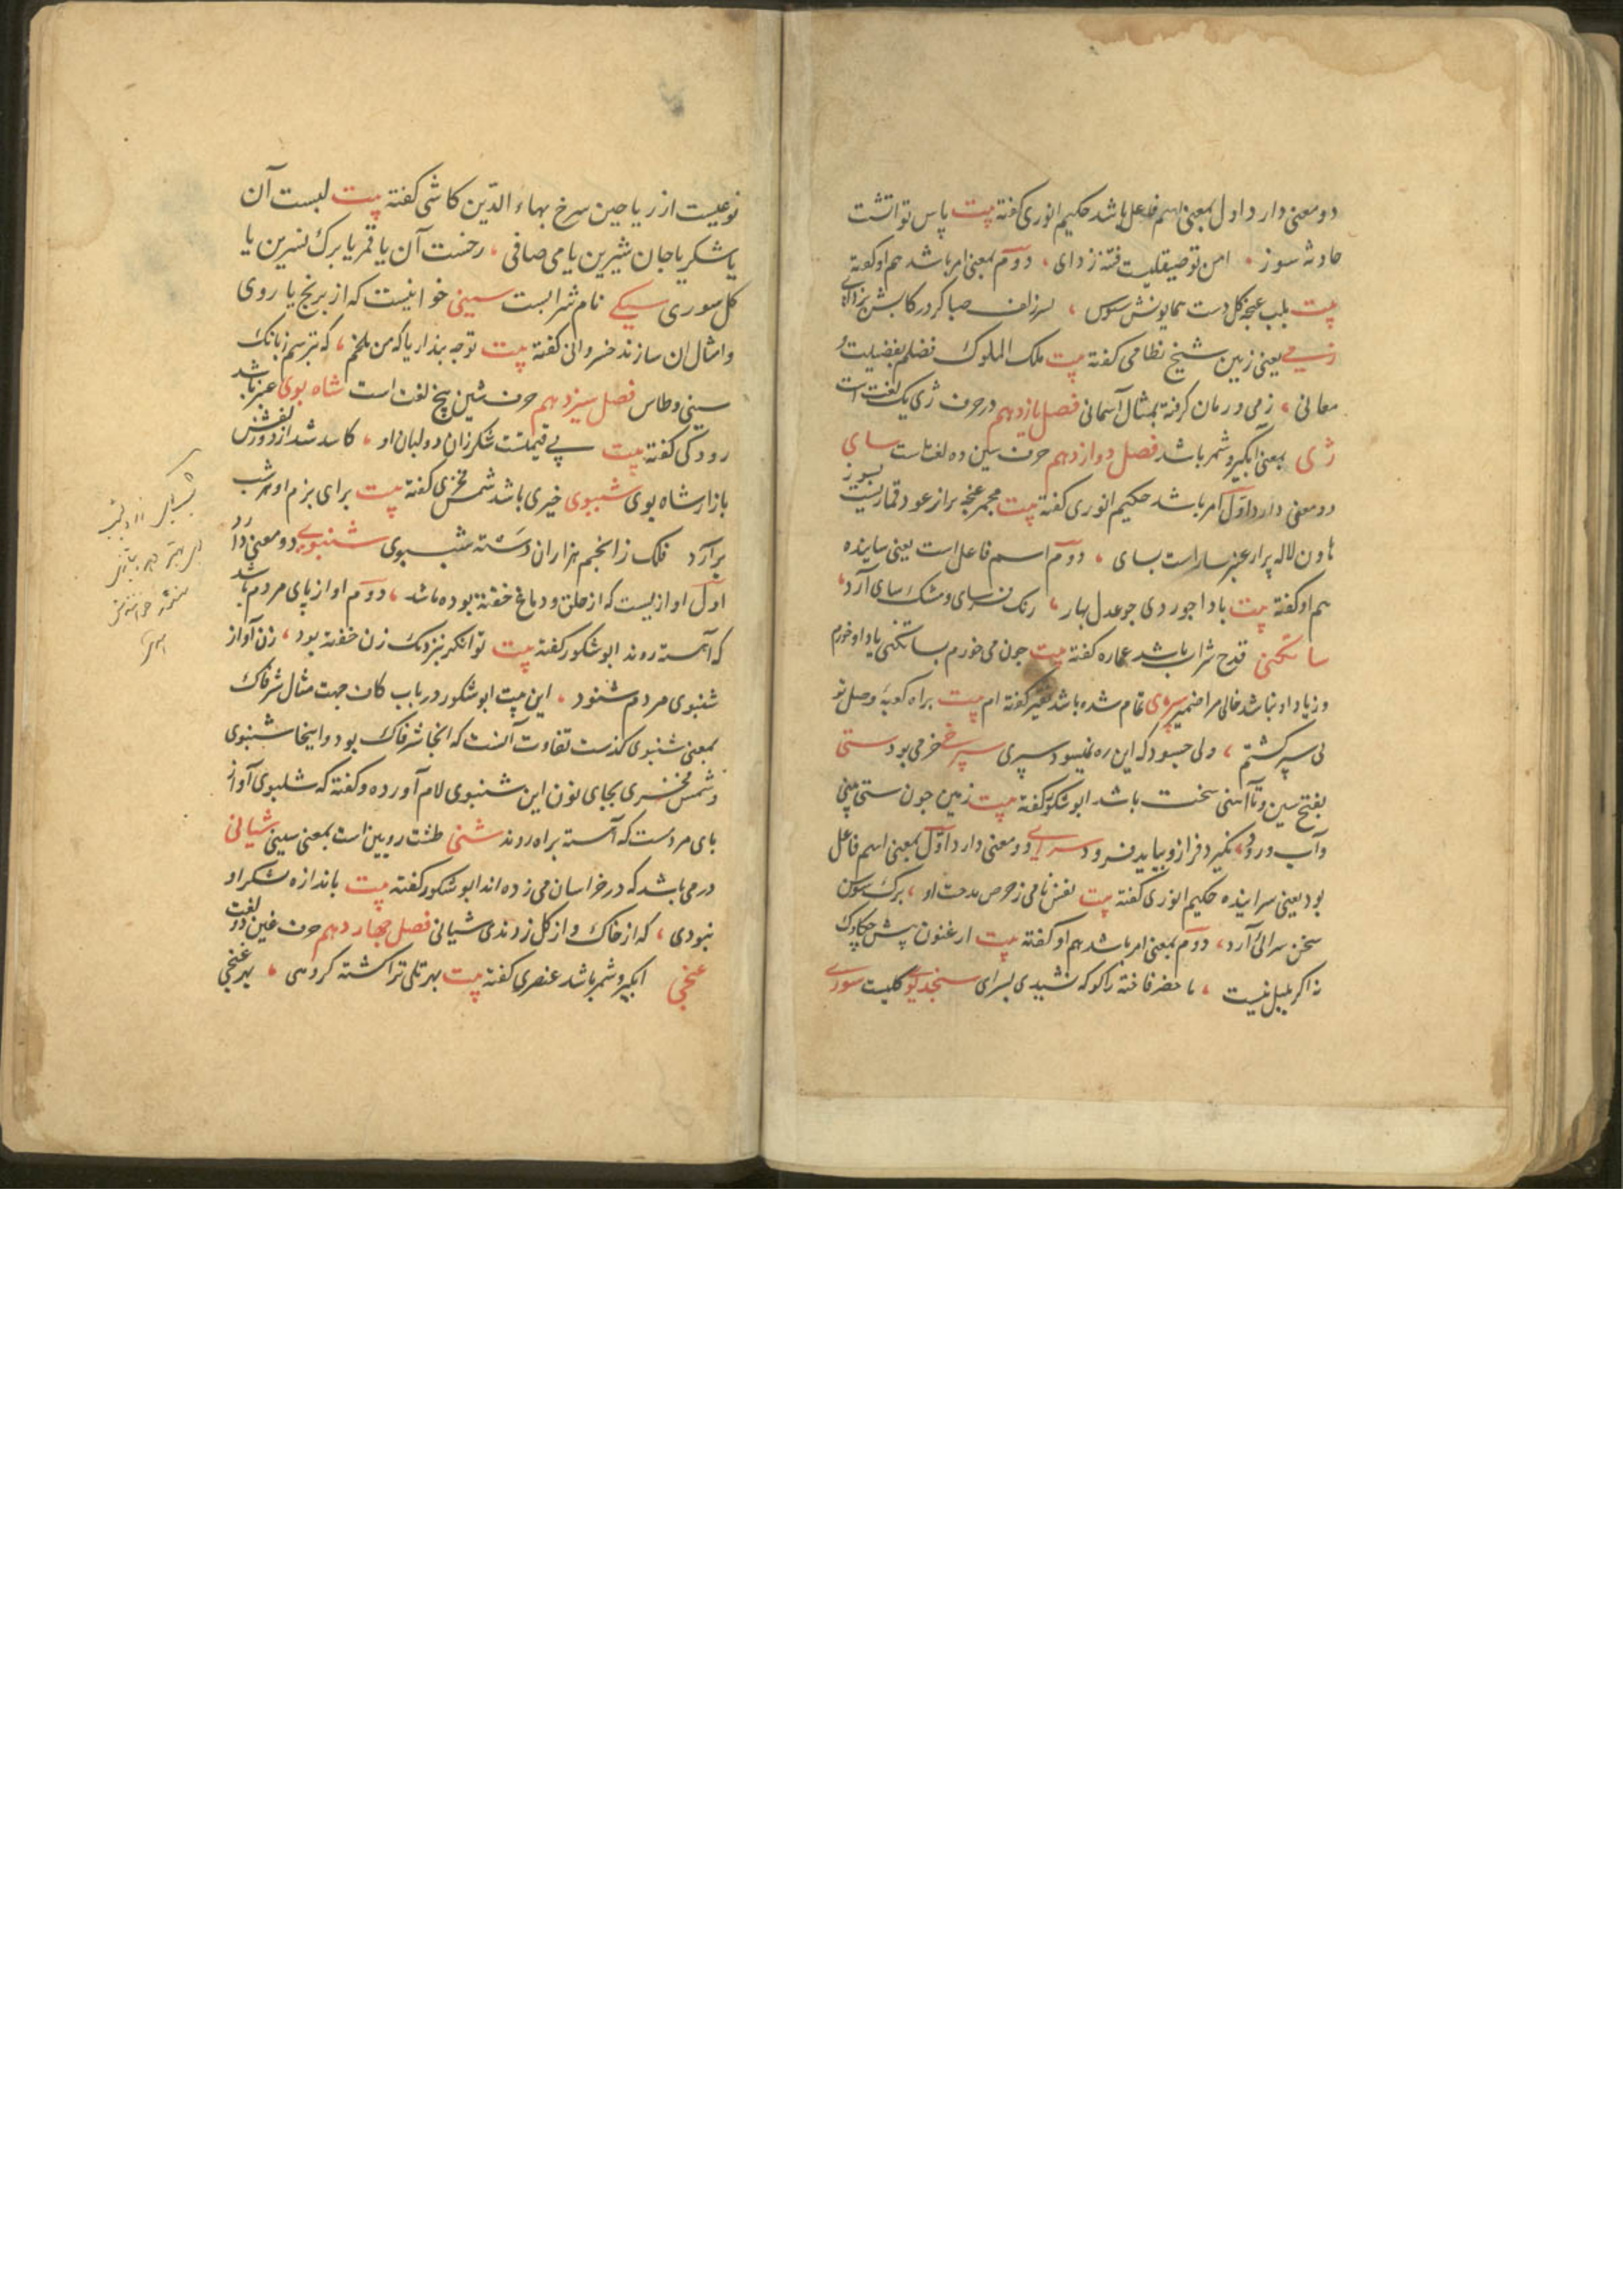 دو معنی دارد اول بمعنی اسم فاعل باشد حکیم انوری گفته بیت پاس تو آتشت
حادثه سوز ، امن تو صیقلیست فتنه زدای ، دوم بمعنی امر باشد هم او گفته
بیت بلب غنچه گل دست همایونش ببوس ، بسر زلف صبا گرد رکابش بزدای
زمی یعنی زمین شیخ نظامی گفته بیت ملک الملوک فضلم بفضیلت
معانی ، زمی و زمان گرفته بمثال آسمانی فصل یازدهم در حرف ژی یک لغت است
ژی بمعنی آبگیر و شمر باشد فصل دوازدهم حرف سین ده لغت است سای
دو معنی دارد اول امر باشد حکیم انوری گفته بیت مجمر غنچه پر از عود قماریست بسوز
هاون لاله پر از عنبر ساراست بسای ، دوم اسم فاعل است یعنی ساینده
هم او گفته بیت باد اجوردی جو عدل بهار ، رنک فرسای و مشک سای آرد
ساتکنی قدح شراب باشد عماره گفته بیت جون می خورم بساتکنی یاد او خورم
وز یاد او نباشد خالی مرا ضمیر سپری تمام شده باشد فقیر گفته ام بیت براه کعبه وصل تو
پی سپر گشتم ، ولی جسود که این ره نمیسود سپری سپرخی خرمی بود ستی
بفتح سین و تا آهنی سخت باشد ابو شکور گفته بیت زمین جون ستی بینی
و آب رود ، نگیرد فراز و بیاید فرود سرای دو معنی دارد اول بمعنی اسم فاعل
بود یعنی سراینده حکیم انوری گفته بیت نفس نامی ز حرص مدحت او ، برک سوسن
سخن سرای آرد ، دوم بمعنی امر باشد هم او گفته بیت ارغنون پیش جکاوک
نه اگر بلبل نیست ، ما حضر فاخته را کو که نشیدی بسرای سنجد بوی گلیست سوری
نوعیست از ریاحین سرخ بهاء الدین کاشی گفته بیت لبست آن
یا شکر یا جان شیرین یا می صافی ، رخست آن یا قمر یا برک نسرین یا
گل سوری سیکی نام شرابست سینی خوانیست که از برنج یا روی
و امثال ان سازند خسروانی گفته بیت توجه پنداریا که من ملخم ، که بترسم ز بانک
سینی و طاس فصل سیزدهم حرف شین پنج لغت است شاه بوی عنبر باشد
رودکی گفته بیت بی قیمتست شکر زان دو لبان او ، کاسد شد از دو زلفش
بازار شاه بوی شببوی خیری باشد شمس فخری گفته بیت برای بزم او هر شب
برآرد فلک ز انجم هزاران دسته شببوی شنبوی دو معنی دارد
اول اوازیست که از حلق و دماغ خفته بوده باشد ، دوم اواز پای مردم باشد
که آهسته روند ابو شکور گفته بیت توانگر بنزدیک زن خفته بود ، زن آواز
شنبوی مردم شنود ، این بیت ابو شکور در باب کاف جهت مثال شرفاک
بمعنی شنبوی گذشت تفاوت آنست که انجا شرفاک بود و اینجا شنبوی
و شمس فخری بجای نون این شنبوی لام آورده و گفته که شلبوی آواز
پای مردمست که آهسته براه روند شنی طشت رویین است بمعنی سینی شیانی
درمی باشد که در خراسان می زده اند ابو شکور گفته بیت باندازه شکر او
نبودی ، که از خاک و از گل زدندی شیانی فصل جهاردهم حرف غین دو لغت
غنجی آبگیر و شمر باشد عنصری گفته بیت بهر تلی ترا کشته گروهی ، بهر غنجی